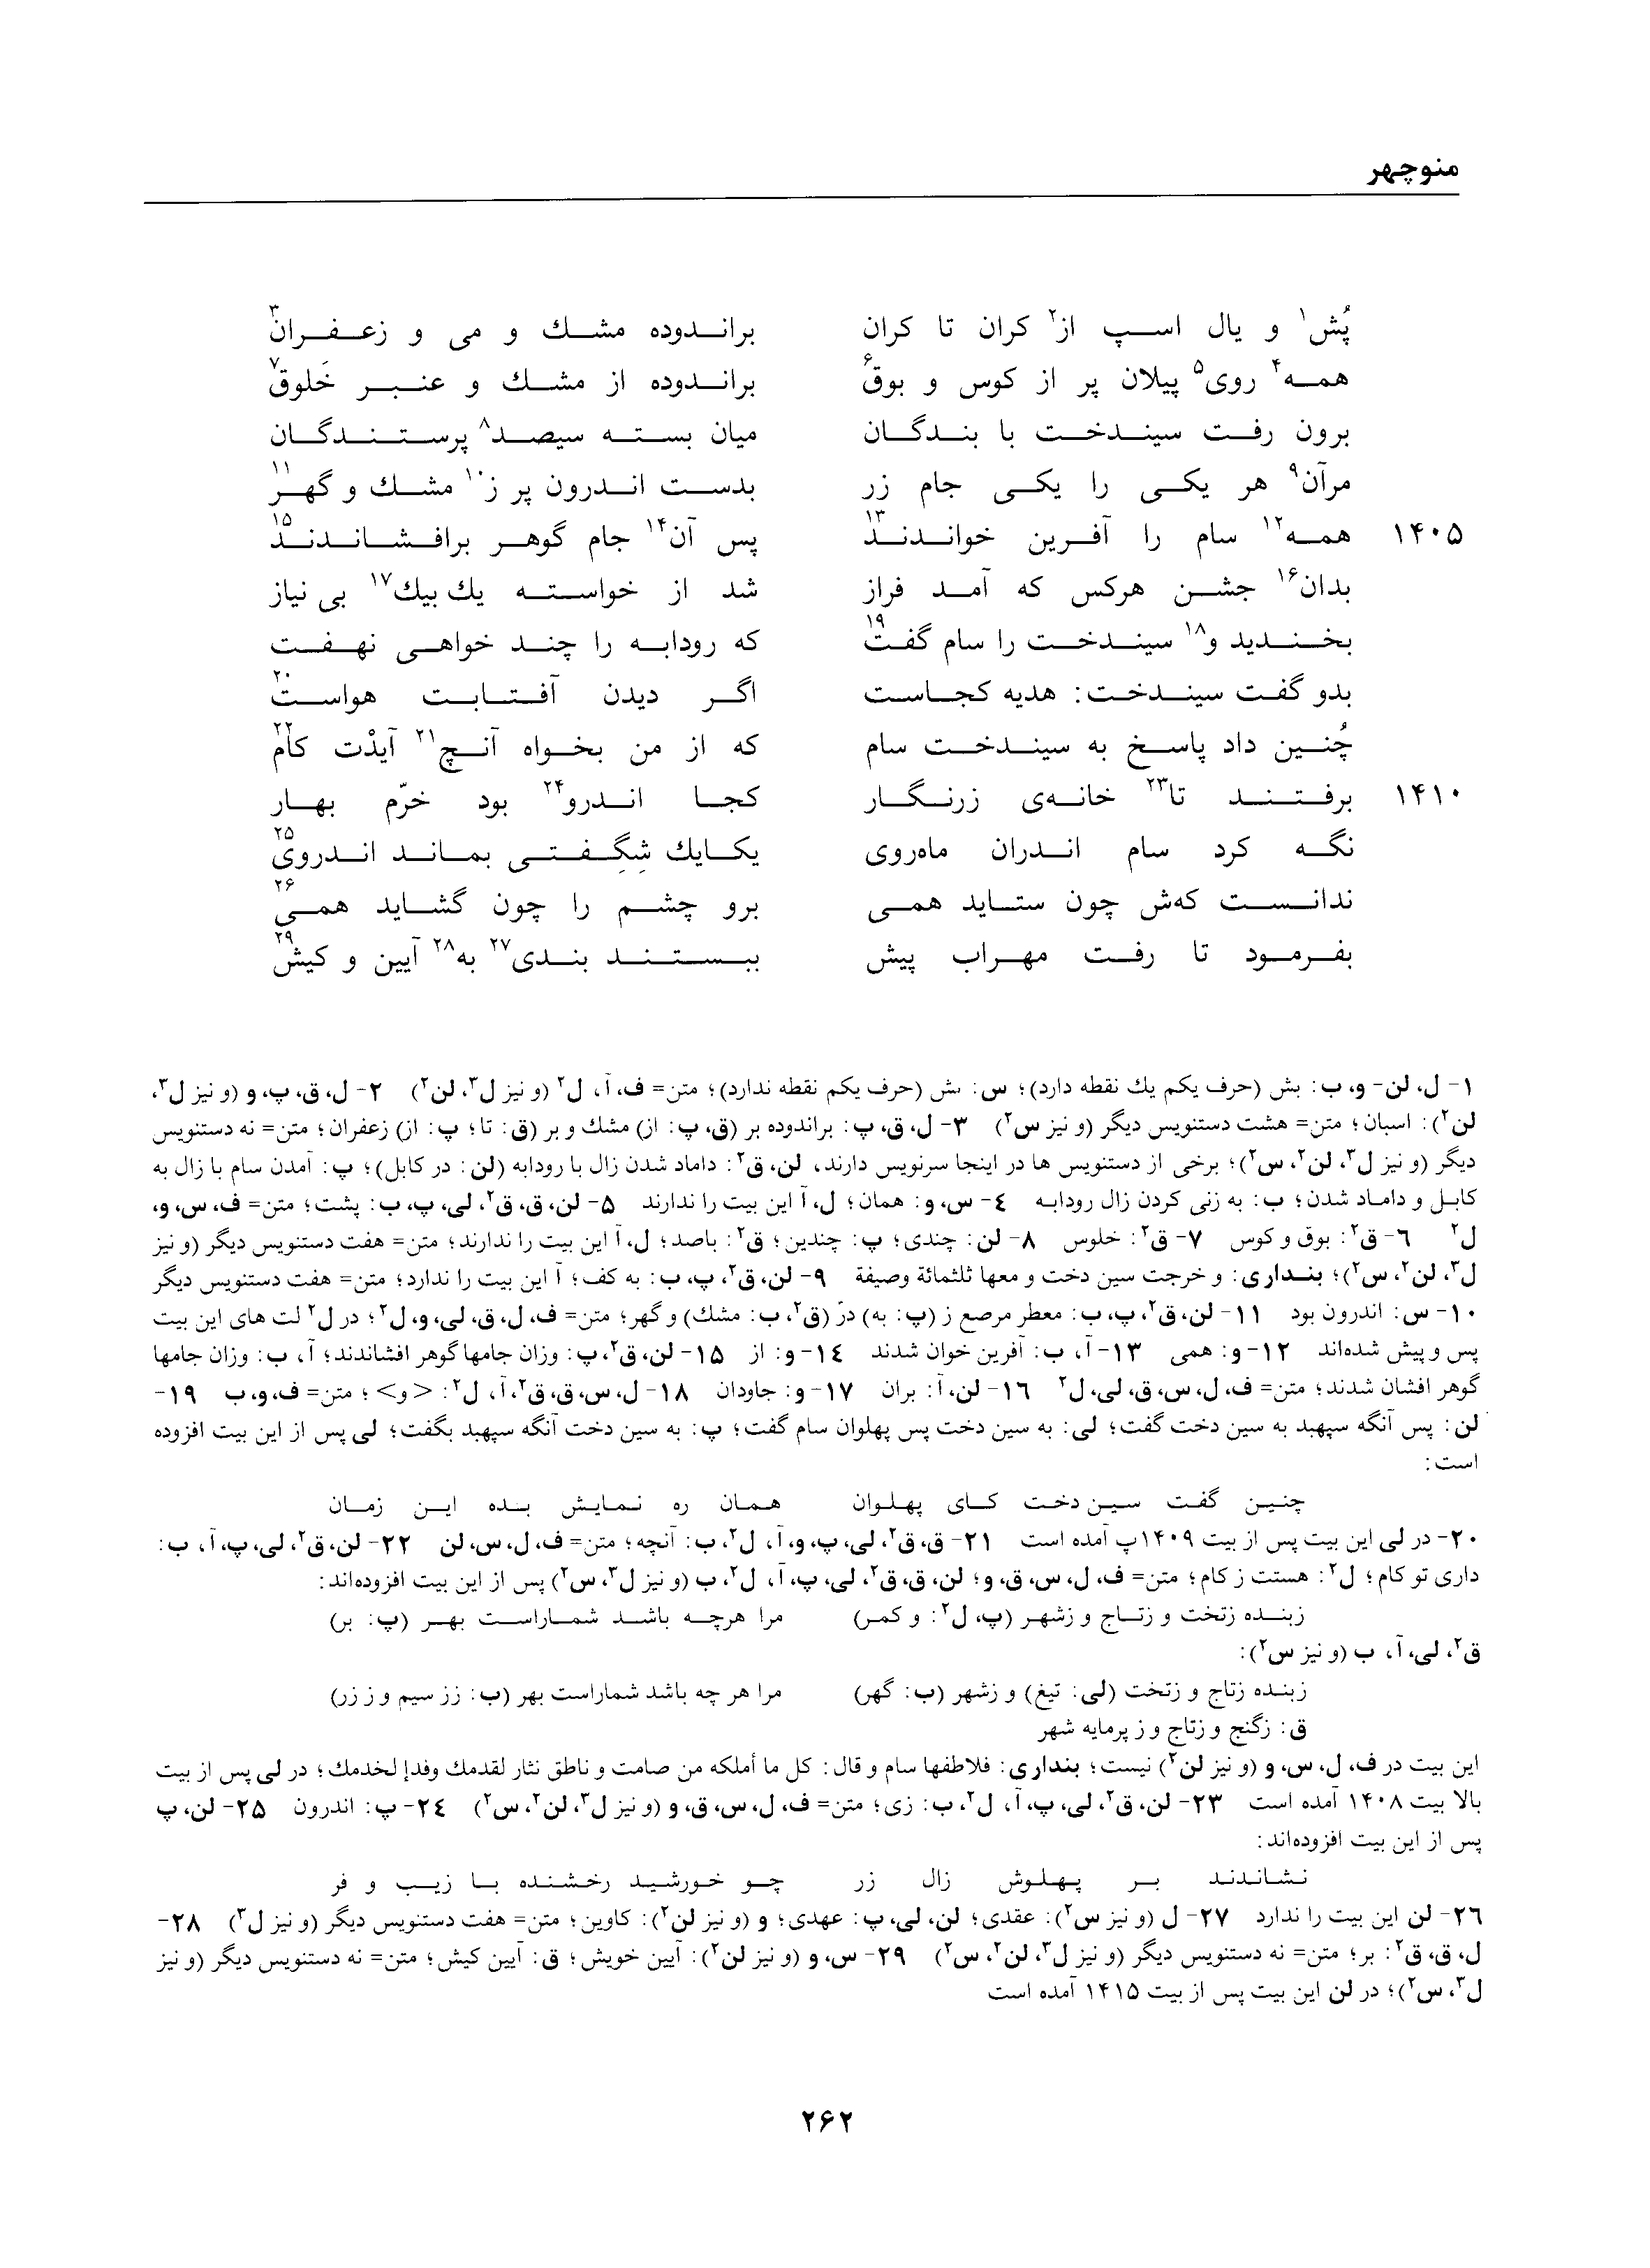 منوچهر
پُش۱ و یال اسپ از۲ کران تا کران براندوده مشك و می و زعفران۳
همه۴ روی۵ پیلان پر از کوس و بوق۶ براندوده از مشك و عنبر خَلوق۷
برون رفت سیندخت با بندگان میان بسته سیصد۸ پرستندگان
مرآن۹ هر یکی را یکی جام زر بدست اندرون پر ز۱۰ مشك و گهر۱۱
۱۴۰۵ همه۱۲ سام را آفرین خواندند۱۳ پس آن۱۴ جام گوهر برافشاندند۱۵
بدان۱۶ جشن هرکس که آمد فراز شد از خواسته یك بیك۱۷ بی نیاز
بخندید و۱۸ سیندخت را سام گفت۱۹ که رودابه را چند خواهی نهفت
بدو گفت سیندخت: هدیه کجاست اگر دیدن آفتابت هواست۲۰
چُنین داد پاسخ به سیندخت سام که از من بخواه آنچ۲۱ آیذْت کام۲۲
۱۴۱۰ برفتند تا۲۳ خانه‌ی زرنگار کجا اندرو۲۴ بود خرّم بهار
نگه کرد سام اندران ماه‌روی یکایك شِگِفتی بماند اندروی۲۵
ندانست که‌ش چون ستاید همی برو چشم را چون گشاید همی۲۶
بفرمود تا رفت مهراب پیش ببستند بندی۲۷ به۲۸ آیین و کیش۲۹
۱- ل، لن- و، ب: بش (حرف یکم یك نقطه دارد)؛ س: ىش (حرف یکم نقطه ندارد)؛ متن= ف، آ، ل۲ (و نیز ل۳، لن۲) ۲- ل، ق، پ، و (و نیز ل۳،
لن۲): اسبان؛ متن= هشت دستنویس دیگر (و نیز س۲) ۳- ل، ق، پ: براندوده بر (ق، پ: از) مشك و بر (ق: تا؛ پ: از) زعفران؛ متن= نه دستنویس
دیگر (و نیز ل۳، لن۲، س۲)؛ برخی از دستنویس ها در اینجا سرنویس دارند، لن، ق۲: داماد شدن زال با رودابه (لن: در کابل)؛ پ: آمدن سام با زال به
کابل و داماد شدن؛ ب: به زنی کردن زال رودابه ٤- س، و: همان؛ ل، آ این بیت را ندارند ۵- لن، ق، ق۲، لی، پ، ب: پشت؛ متن= ف، س، و،
ل۲ ٦- ق۲: بوق و کوس ۷- ق۲: خلوس ۸- لن: چندی؛ پ: چندین؛ ق۲: باصد؛ ل، آ این بیت را ندارند؛ متن= هفت دستنویس دیگر (و نیز
ل۳، لن۲، س۲)؛ بنداری: و خرجت سین دخت و معها ثلثمائة وصیفة ۹- لن، ق۲، پ، ب: به کف؛ آ این بیت را ندارد؛ متن= هفت دستنویس دیگر
۱۰- س: اندرون بود ۱۱- لن، ق۲، پ، ب: معطر مرصع ز (پ: به) درّ (ق۲، ب: مشك) و گهر؛ متن= ف، ل، ق، لی، و، ل۲؛ در ل۲ لت های این بیت
پس و پیش شده‌اند ۱۲- و: همی ۱۳- آ، ب: آفرین خوان شدند ۱٤- و: از ۱۵- لن، ق۲، پ: وزان جامها گوهر افشاندند؛ آ، ب: وزان جامها
گوهر افشان شدند؛ متن= ف، ل، س، ق، لی، ل۲ ۱٦- لن، آ: بران ۱۷- و: جاودان ۱۸- ل، س، ق، ق۲، آ، ل۲: <و>؛ متن= ف، و، ب ۱۹-
لن: پس آنگه سپهبد به سین دخت گفت؛ لی: به سین دخت پس پهلوان سام گفت؛ پ: به سین دخت آنگه سپهبد بگفت؛ لی پس از این بیت افزوده
است:
چنین گفت سین دخت کای پهلوان همان ره نمایش بده این زمان
۲۰- در لی این بیت پس از بیت ۱۴۰۹پ آمده است ۲۱- ق، ق۲، لی، پ، و، آ، ل۲، ب: آنچه؛ متن= ف، ل، س، لن ۲۲- لن، ق۲، لی، پ، آ، ب:
داری تو کام؛ ل۲: هستت ز کام؛ متن= ف، ل، س، ق، و؛ لن، ق، ق۲، لی، پ، آ، ل۲، ب (و نیز ل۳، س۲) پس از این بیت افزوده‌اند:
زبنده زتخت و زتاج و زشهر (پ، ل۲: و کمر) مرا هرچه باشد شماراست بهر (پ: بر)
ق۲، لی، آ، ب (و نیز س۲):
زبنده زتاج و زتخت (لی: تیغ) و زشهر (ب: گهر) مرا هر چه باشد شماراست بهر (ب: زز سیم و ز زر)
ق: زگنج و زتاج و ز پرمایه شهر
این بیت در ف، ل، س، و (و نیز لن۲) نیست؛ بنداری: فلاطفها سام و قال: كل ما أملكه من صامت و ناطق نثار لقدمك وفدإ لخدمك؛ در لی پس از بیت
بالا بیت ۱۴۰۸ آمده است ۲۳- لن، ق۲، لی، پ، آ، ل۲، ب: زی؛ متن= ف، ل، س، ق، و (و نیز ل۳، لن۲، س۲) ۲٤- پ: اندرون ۲۵- لن، پ
پس از این بیت افزوده‌اند:
نشاندند بر پهلوش زال زر چو خورشید رخشنده با زیب و فر
۲٦- لن این بیت را ندارد ۲۷- ل (و نیز س۲): عقدی؛ لن، لی، پ: عهدی؛ و (و نیز لن۲): کاوین؛ متن= هفت دستنویس دیگر (و نیز ل۳) ۲۸-
ل، ق، ق۲: بر؛ متن= نه دستنویس دیگر (و نیز ل۳، لن۲، س۲) ۲۹- س، و (و نیز لن۲): آیین خویش؛ ق: آیین کیش؛ متن= نه دستنویس دیگر (و نیز
ل۳، س۲)؛ در لن این بیت پس از بیت ۱۴۱۵ آمده است
۲۶۲